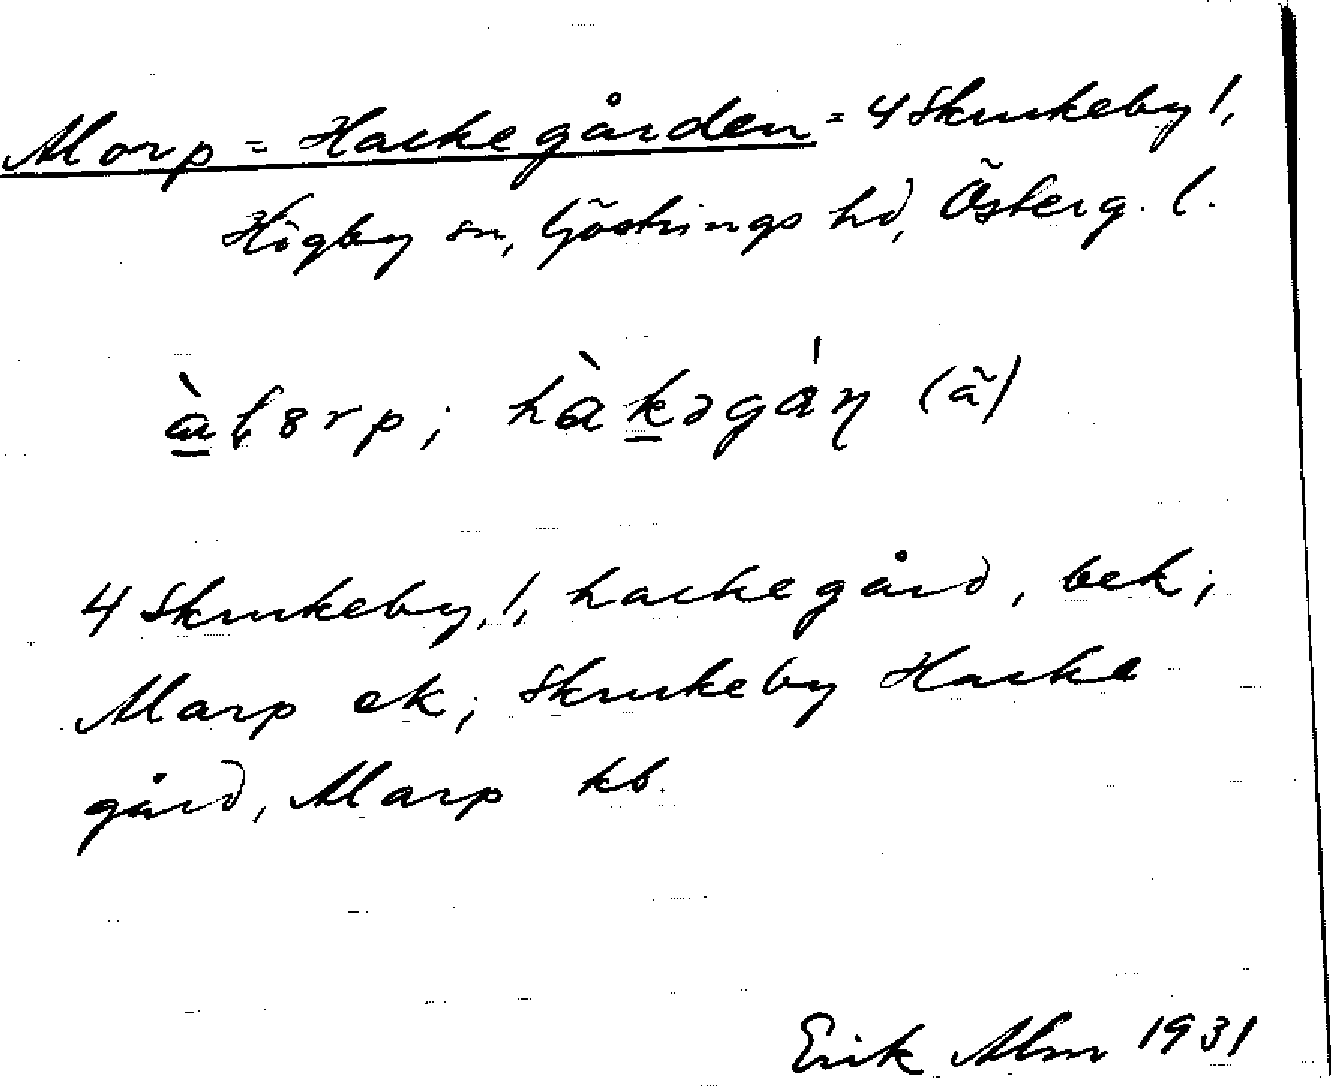 Alorp = Hackegården = 4 Skrukeby 1,
Högby sn, Göstrings hd, Österg. l.
àlorp; hàkəgán (ā)
4 Skrukeby, 1, hackegård, bek;
Alarp ek; Skrukeby Hacke
gård, Alarp kb.
Erik Alm 1931